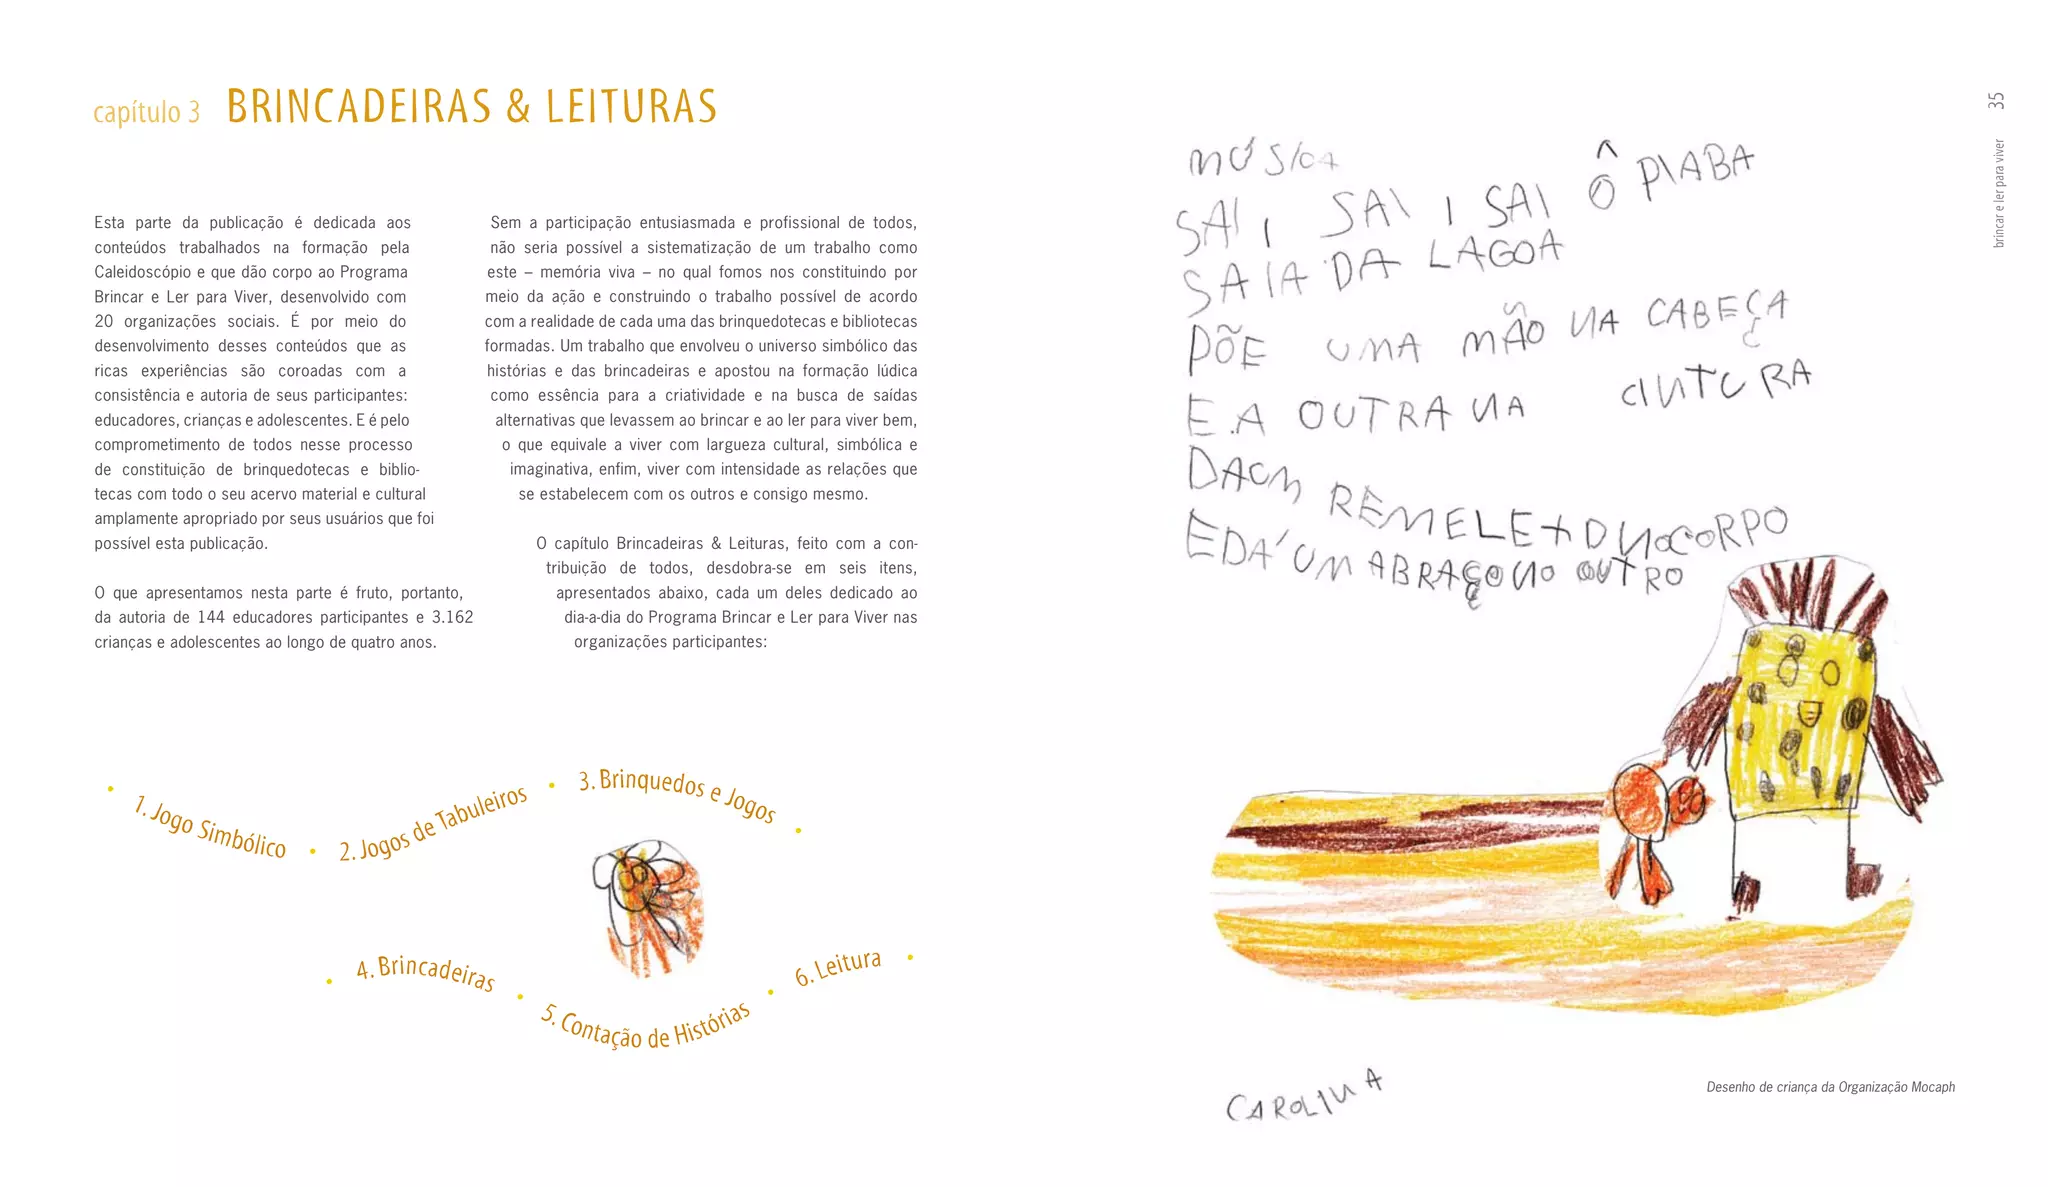 capítulo 3 BRINCADEIRAS & LEITURAS
Esta parte da publicação é dedicada aos
conteúdos trabalhados na formação pela
Caleidoscópio e que dão corpo ao Programa
Brincar e Ler para Viver, desenvolvido com
20 organizações sociais. É por meio do
desenvolvimento desses conteúdos que as
ricas experiências são coroadas com a
consistência e autoria de seus participantes:
educadores, crianças e adolescentes. E é pelo
comprometimento de todos nesse processo
de constituição de brinquedotecas e biblio-
tecas com todo o seu acervo material e cultural
amplamente apropriado por seus usuários que foi
possível esta publicação.
O que apresentamos nesta parte é fruto, portanto,
da autoria de 144 educadores participantes e 3.162
crianças e adolescentes ao longo de quatro anos.
Sem a participação entusiasmada e profissional de todos,
não seria possível a sistematização de um trabalho como
este – memória viva – no qual fomos nos constituindo por
meio da ação e construindo o trabalho possível de acordo
com a realidade de cada uma das brinquedotecas e bibliotecas
formadas. Um trabalho que envolveu o universo simbólico das
histórias e das brincadeiras e apostou na formação lúdica
como essência para a criatividade e na busca de saídas
alternativas que levassem ao brincar e ao ler para viver bem,
o que equivale a viver com largueza cultural, simbólica e
imaginativa, enfim, viver com intensidade as relações que
se estabelecem com os outros e consigo mesmo.
O capítulo Brincadeiras & Leituras, feito com a con-
tribuição de todos, desdobra-se em seis itens,
apresentados abaixo, cada um deles dedicado ao
dia-a-dia do Programa Brincar e Ler para Viver nas
organizações participantes:
• 1. Jogo Simbólico • 2. Jogos de Tabuleiros • 3. Brinquedos e Jogos •
• 4. Brincadeiras • 5. Contação de Histórias • 6. Leitura •
MÚSICA
SAI, SAI, SAI Ô PIABA
SAIA DA LAGOA
PÕE UMA MÃO NA CABEÇA
E A OUTRA NA CINTURA
DACM REMELEXO NOCORPO
E DÁ UM ABRAÇO NO OUTRO
CAROLINA
Desenho de criança da Organização Mocaph
brincar e ler para viver 35